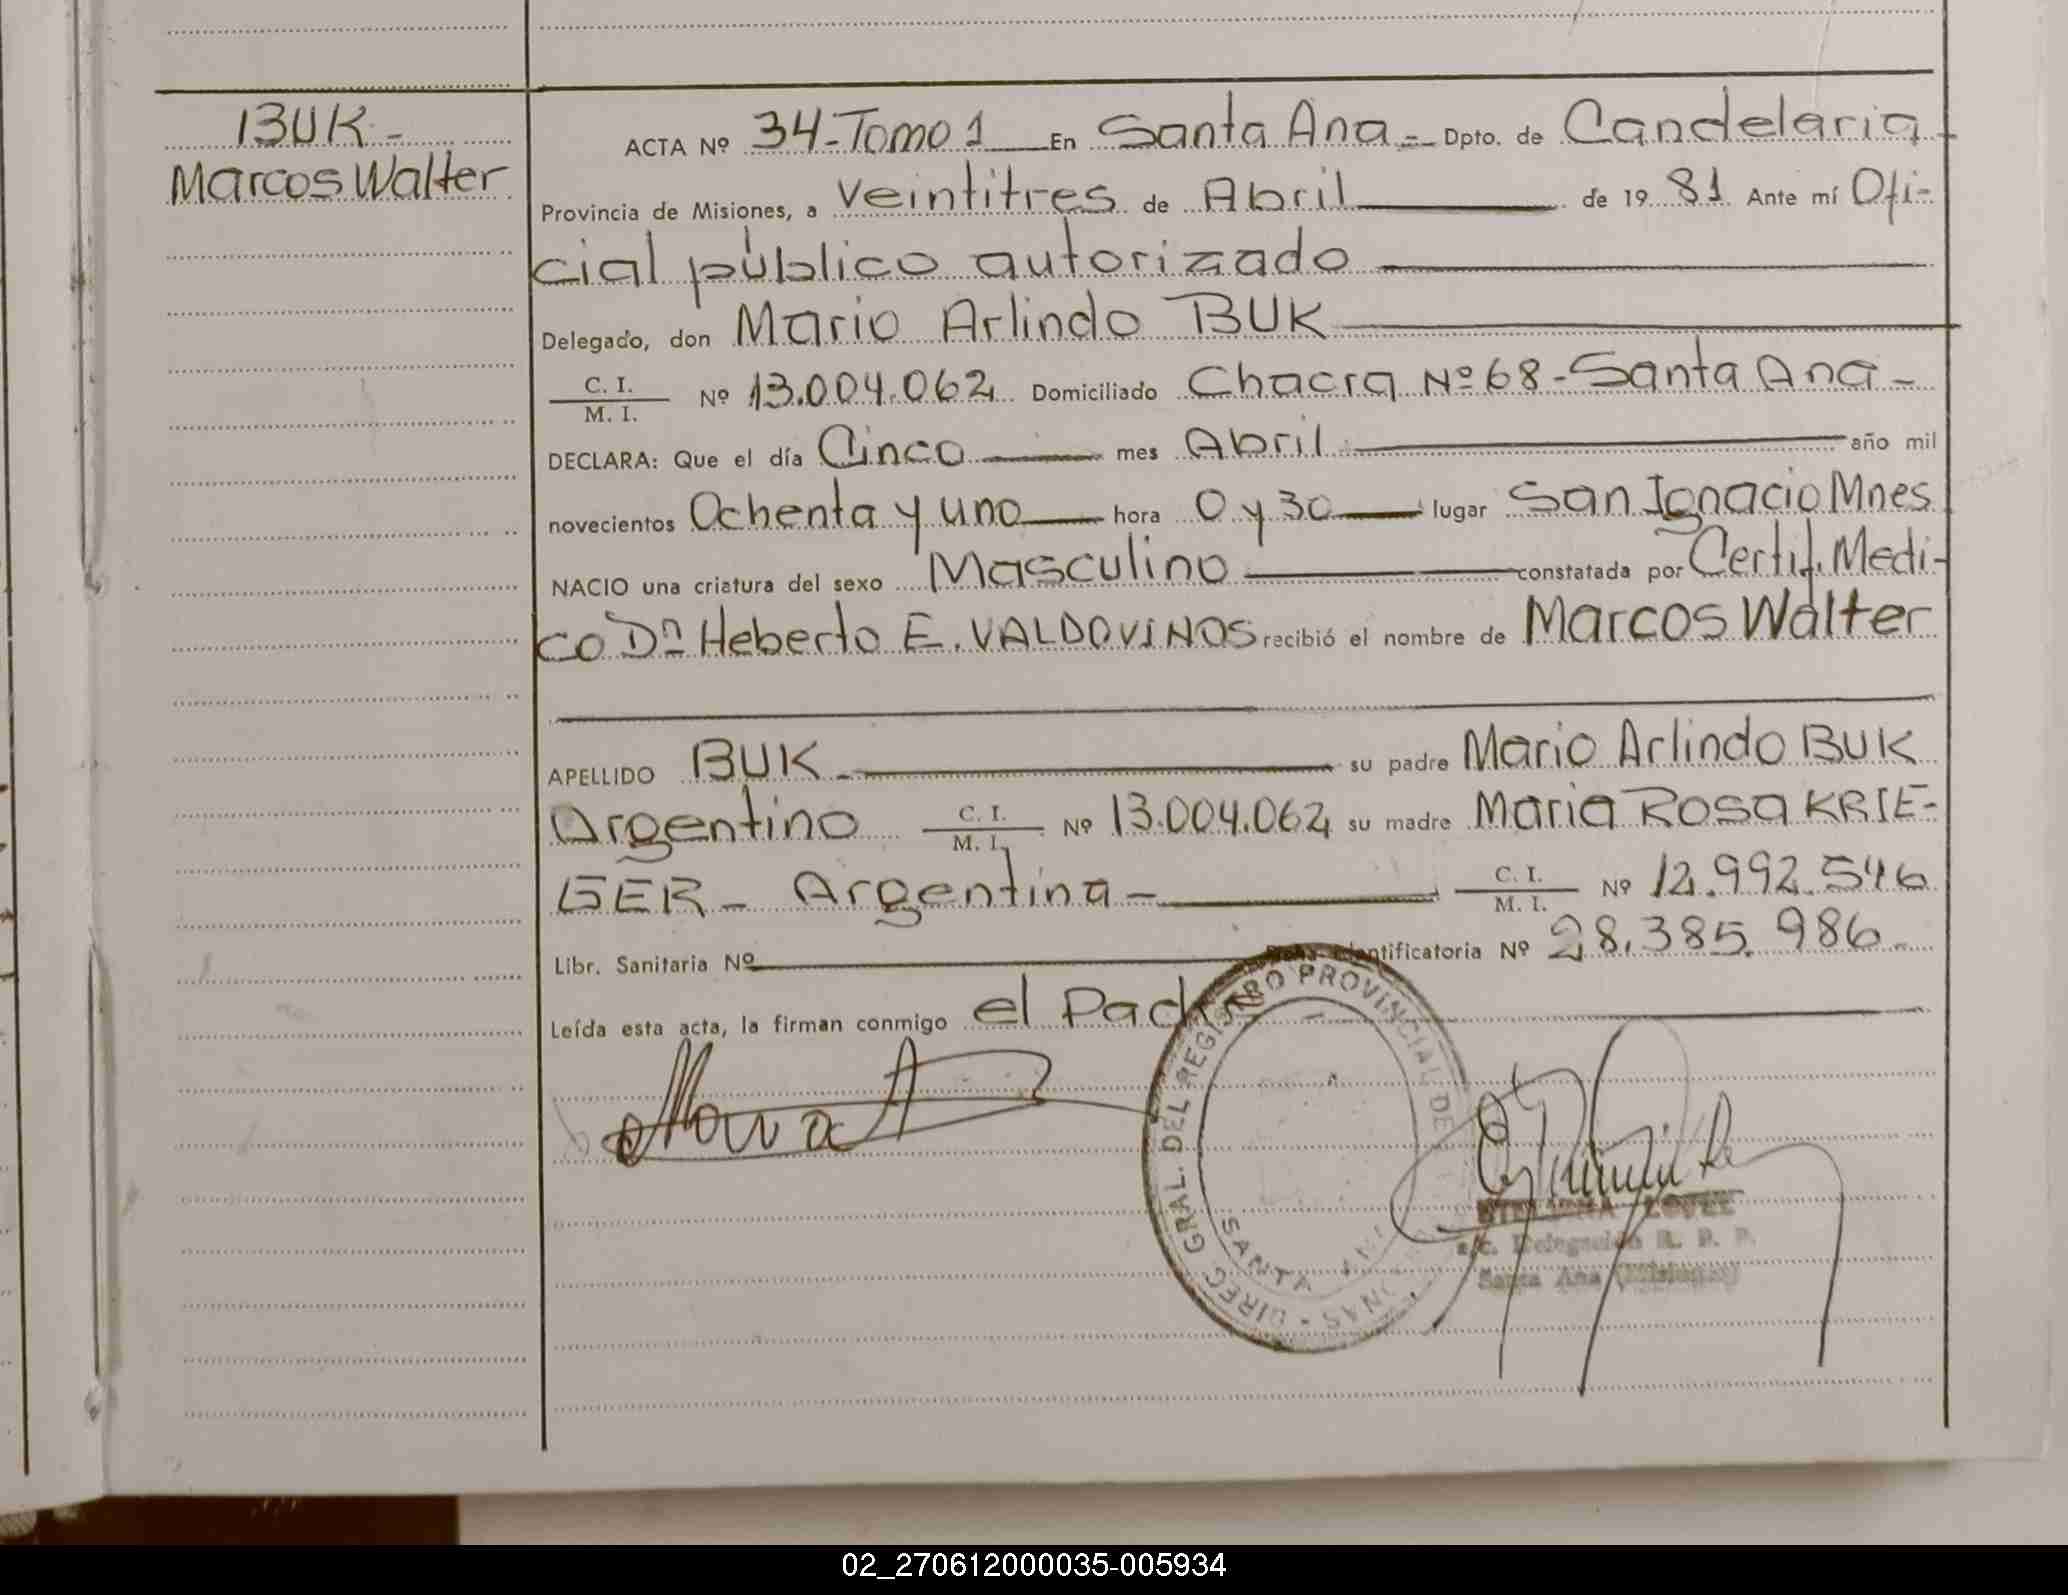 BUK-
Marcos Walter
ACTA Nº 34-Tomo 1 En Santa Ana- Dpto. de Candelaria
Provincia de Misiones, a veintitres de Abril de 19 81 Ante mí Ofi-
cial público autorizado
Delegado, don Mario Arlindo BUK
C. I.
M. I. Nº 13.004.062 Domiciliado Chacra Nº 68-Santa Ana-
DECLARA: Que el día Cinco mes Abril año mil
novecientos Ochenta y uno hora 0 y 30 lugar San Ignacio Mnes
NACIO una criatura del sexo Masculino constatada por Certif. Medi-
co Dn Heberto E. VALDOVINOS recibió el nombre de Marcos Walter
APELLIDO BUK- su padre Mario Arlindo BUK
Argentino C. I. M. I. Nº 13.004.062 su madre Maria Rosa KRIE-
GER- Argentina- C. I. M. I. Nº 12.992.546
Libr. Sanitaria Nº Ficha Identificatoria Nº 28.385.986
Leída esta acta, la firman conmigo el Padre
DIREC. GRAL. DEL REGISTRO PROVINCIAL DE
SANTA ANA
LOPEZ
a/c. Delegación R. P. P.
Santa Ana (Misiones)
02_270612000035-005934